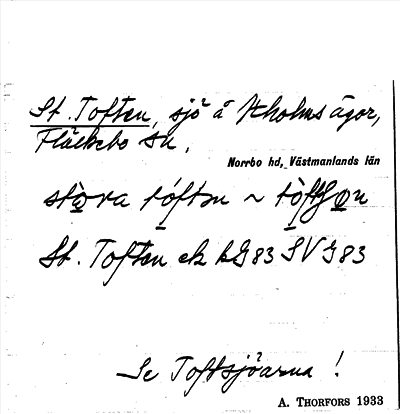 St. Toften, sjö å Kholms ägor,
Fläckebo sn,
Norrbo hd, Västmanlands län
stora toften ~
St. Toften ek kG83 SVG83
Se Toftsjöarna!
A. THORFORS 1933